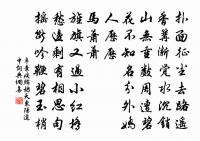 扑面征塵去路遥
香篝漸覺水沉銷
山無重數周遭碧
花不知名分外嬌
人歷歷
馬蕭蕭
旌旗又過小紅橋
愁邊剩有相思句
摇斷吟鞭碧玉梢
辛棄疾鷓鴣天東陽道
中